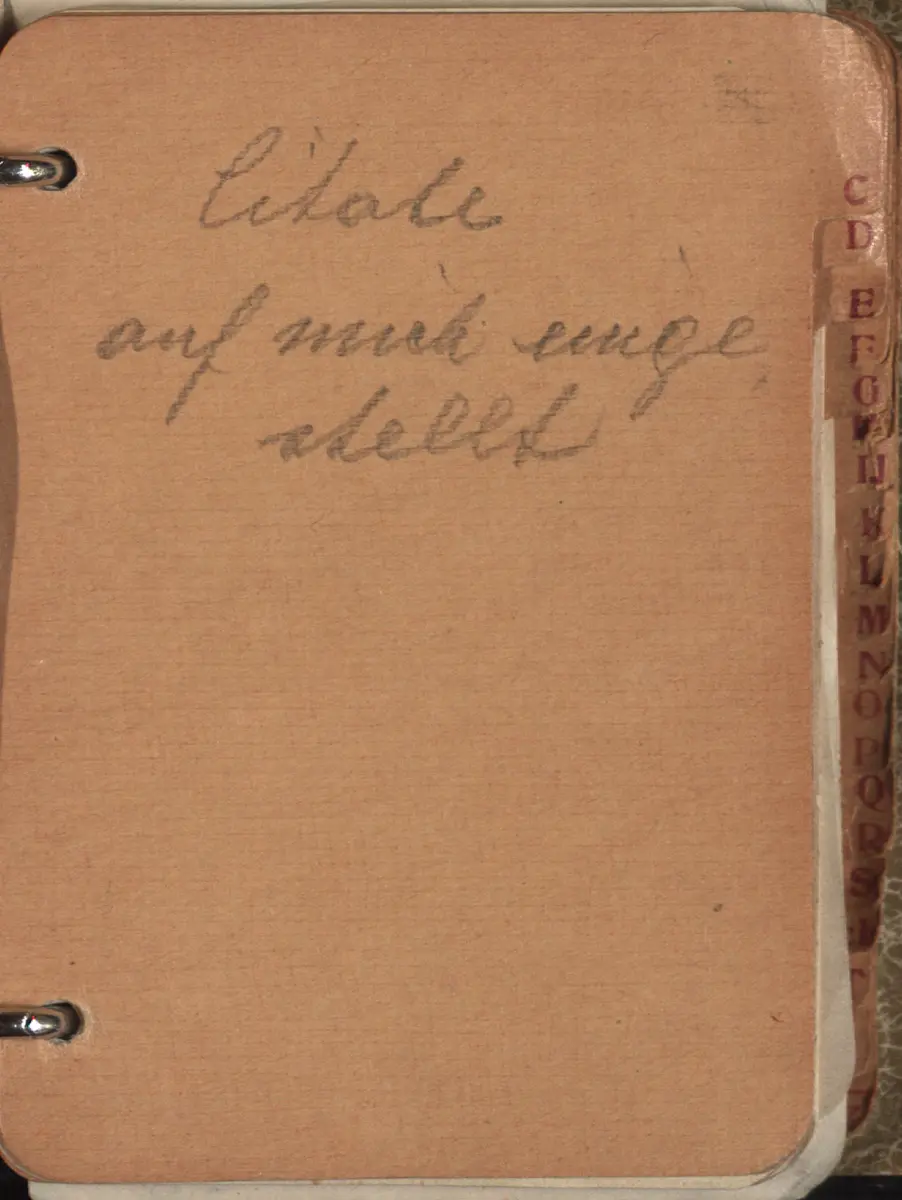 Citate
auf mich einge
stellt
C
D
E
F
G
H
K
L
M
N
O
P
Q
R
S